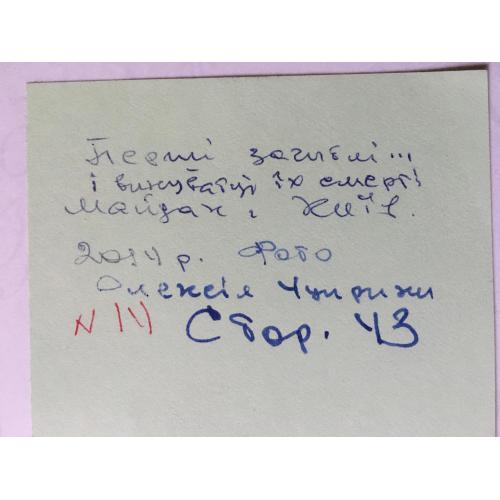 Перші загиблі...
і винуватці їх смерті
Майдан, Київ.
2014 р. Фото
Олексія Чуприни
N 14
Стор. 43